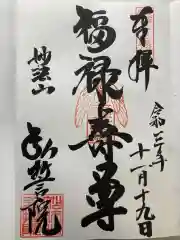 奉拝
福禄寿尊
令和三年
十一月十九日
妙法山
弘誓院